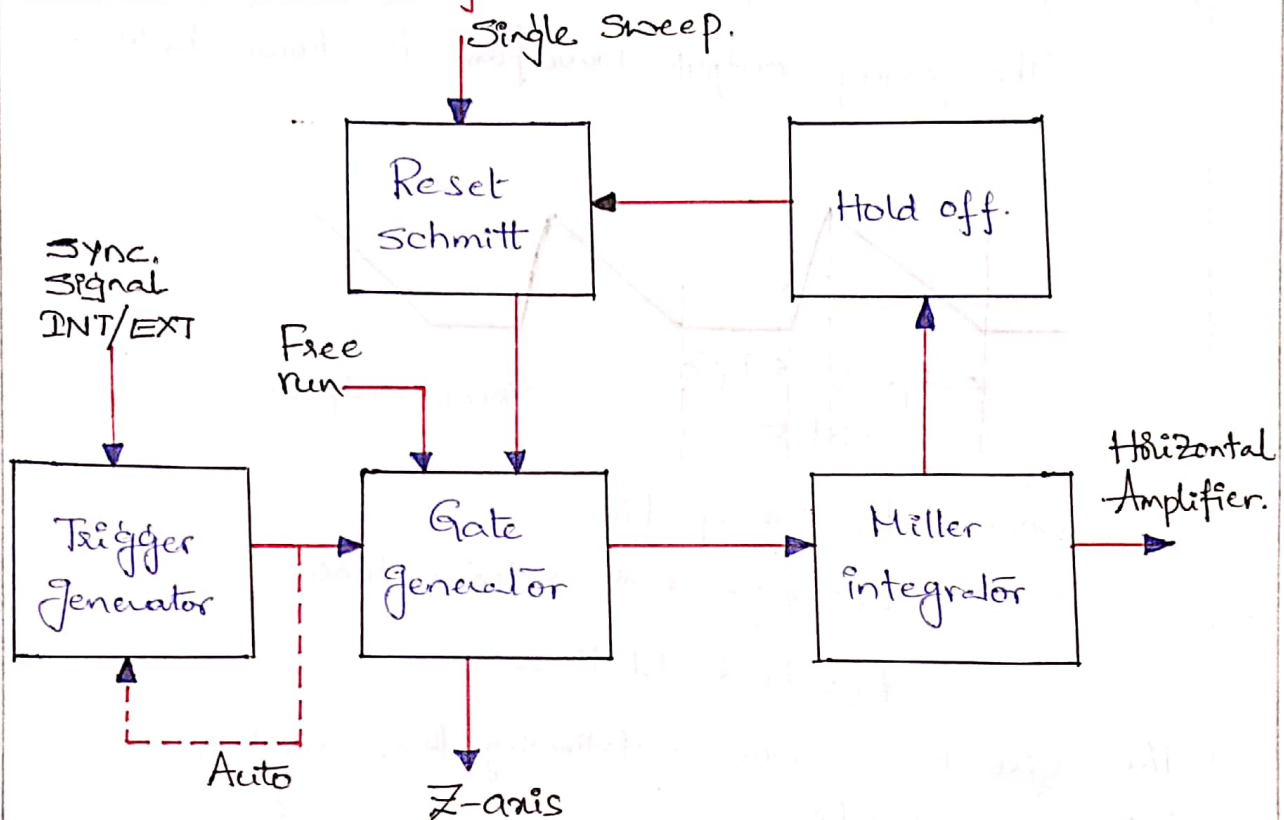 Single Sweep.
Reset
schmitt
Hold off.
Sync.
Signal
INT/EXT
Free
run
Trigger
generator
Gate
generator
Miller
integrator
Horizontal
Amplifier.
Auto
Z-axis